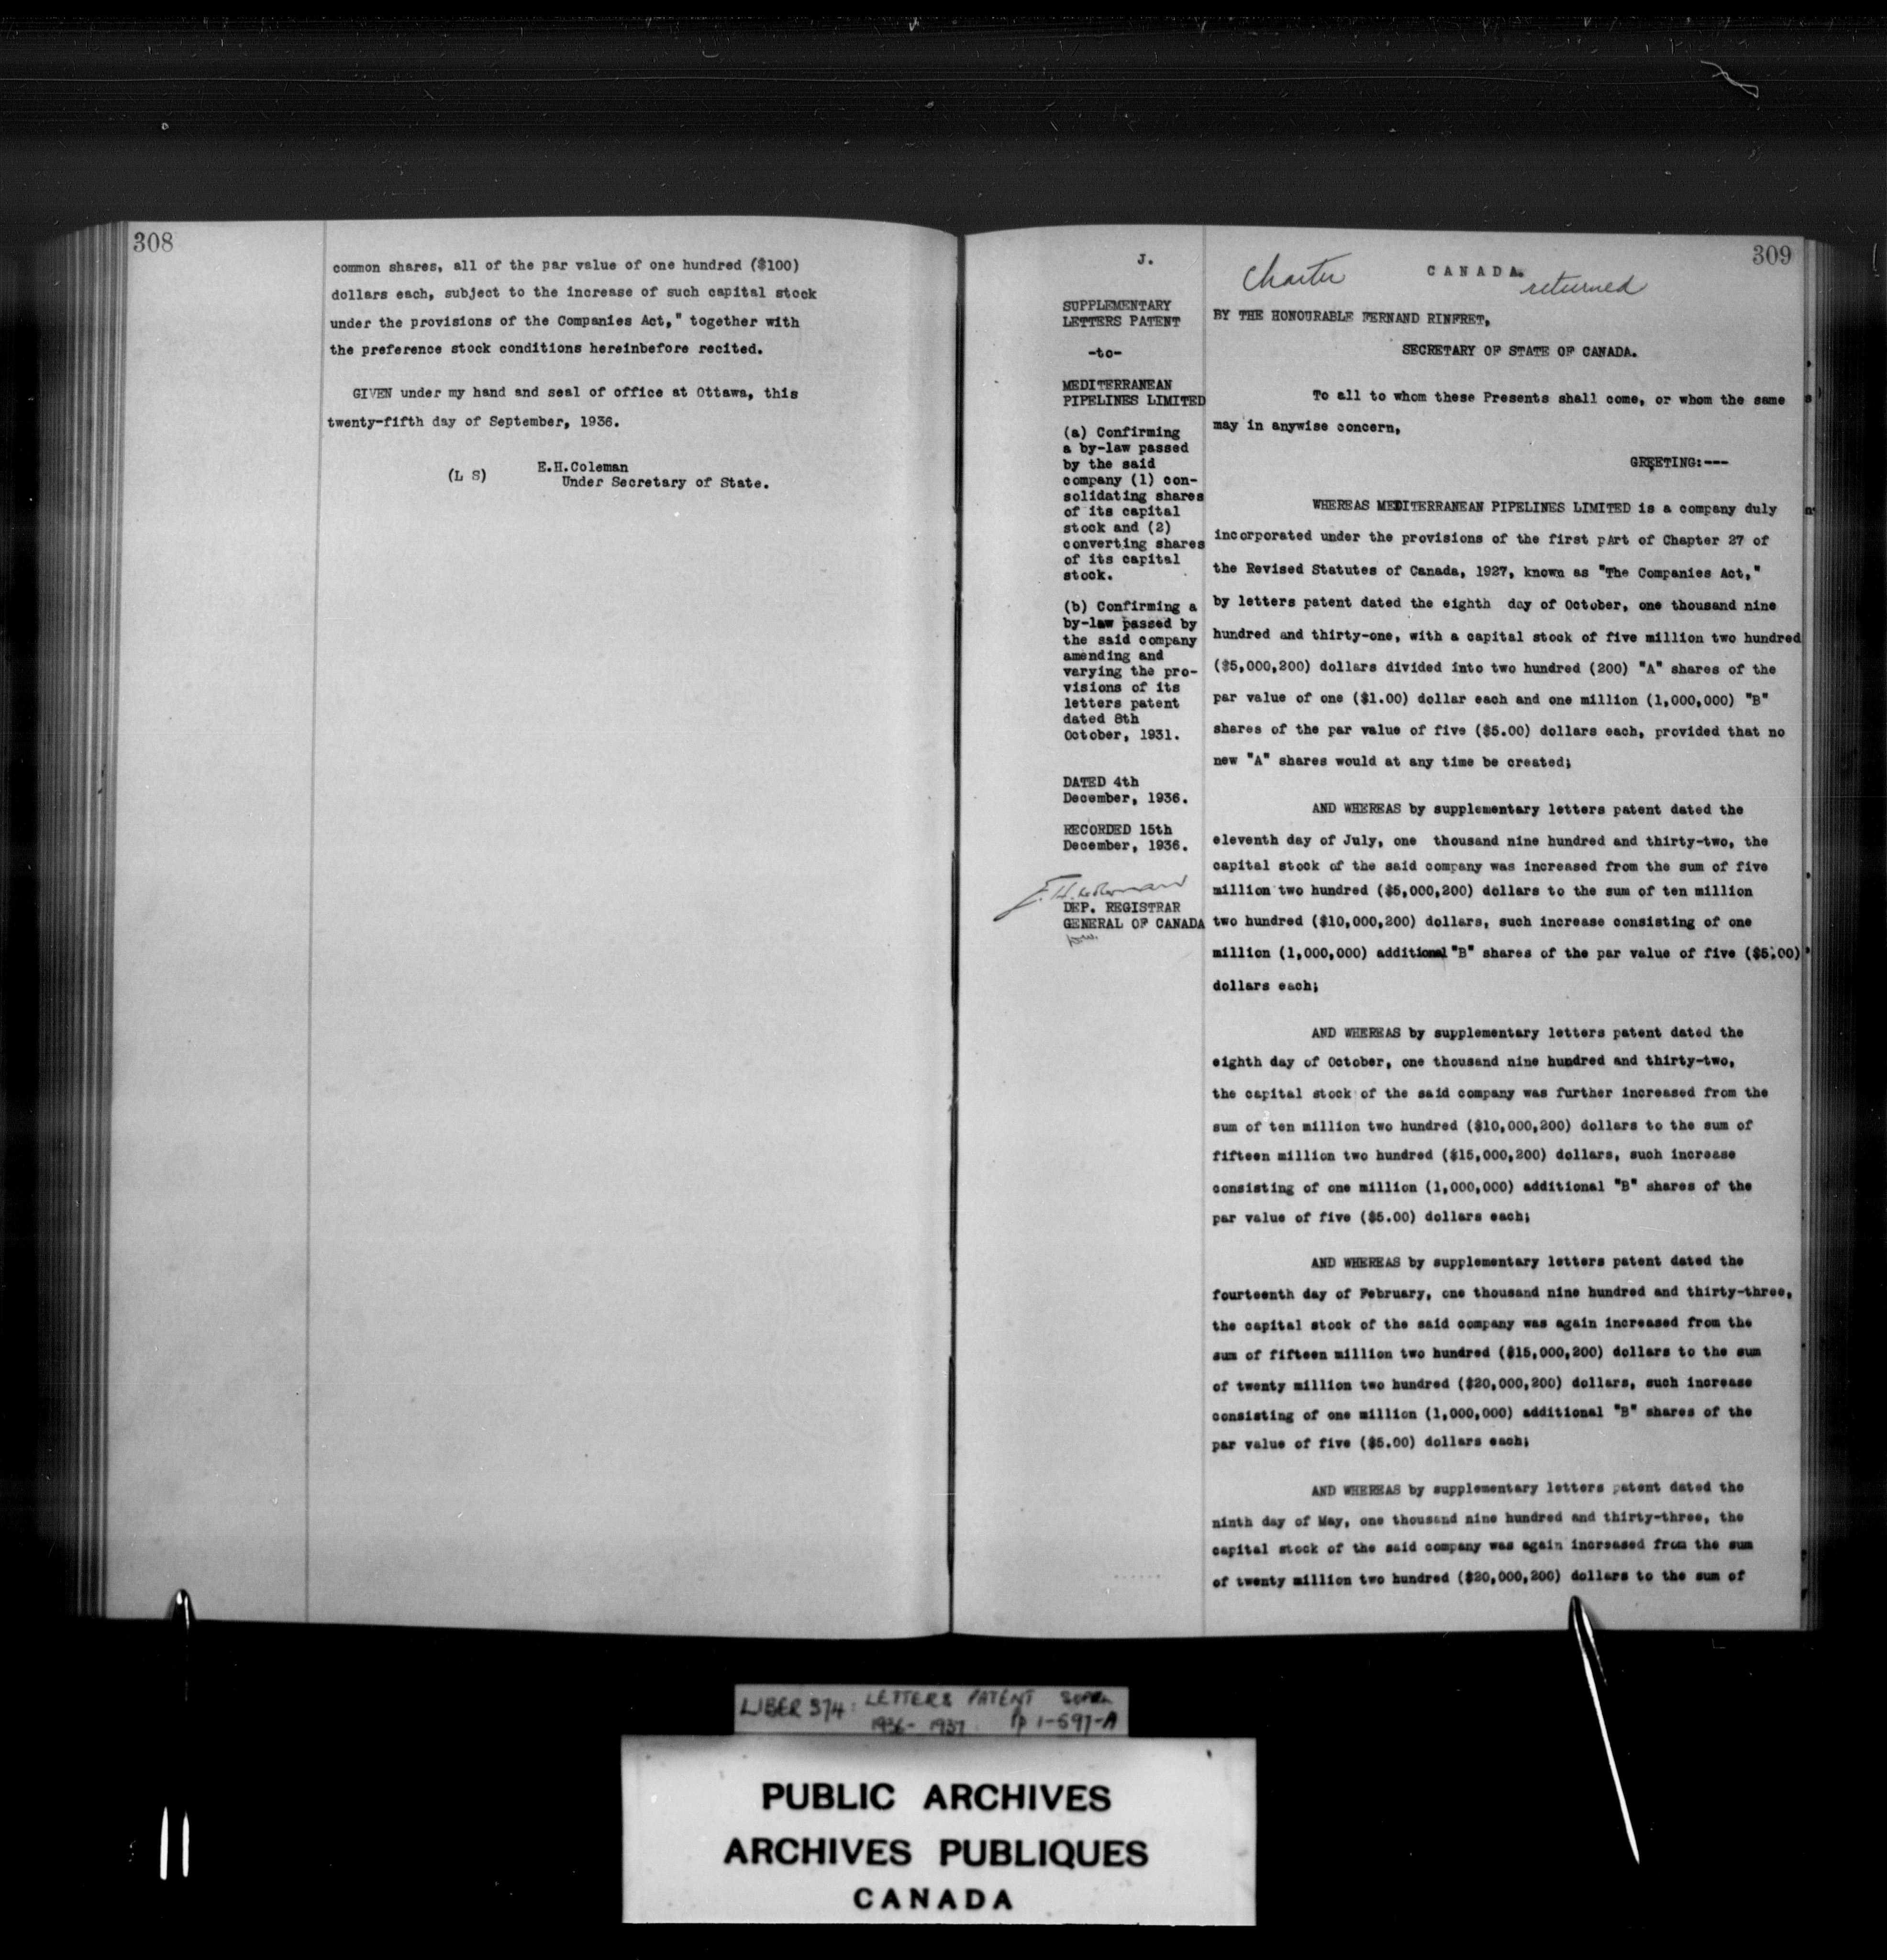 308
common shares, all of the par value of one hundred ($100)
dollars each, subject to the increase of such capital stock
under the provisions of the Companies Act," together with
the preference stock conditions hereinbefore recited.
GIVEN under my hand and seal of office at Ottawa, this
twenty-fifth day of September, 1936.
(L S) E.H.Coleman
Under Secretary of State.
309
J.
SUPPLEMENTARY
LETTERS PATENT
-to-
MEDITERRANEAN
PIPELINES LIMITED
(a) Confirming
a by-law passed
by the said
company (1) con-
solidating shares
of its capital
stock and (2)
converting shares
of its capital
stock.
(b) Confirming a
by-law passed by
the said company
amending and
varying the pro-
visions of its
letters patent
dated 8th
October, 1931.
DATED 4th
December, 1936.
RECORDED 15th
December, 1936.
DEP. REGISTRAR
GENERAL OF CANADA
Charter CANADA. returned
BY THE HONOURABLE FERNAND RINFRET,
SECRETARY OF STATE OF CANADA.
To all to whom these Presents shall come, or whom the same
may in anywise concern,
GREETING:---
WHEREAS MEDITERRANEAN PIPELINES LIMITED is a company duly
incorporated under the provisions of the first pArt of Chapter 27 of
the Revised Statutes of Canada, 1927, known as "The Companies Act,"
by letters patent dated the eighth day of October, one thousand nine
hundred and thirty-one, with a capital stock of five million two hundred
($5,000,200) dollars divided into two hundred (200) "A" shares of the
par value of one ($1.00) dollar each and one million (1,000,000) "B"
shares of the par value of five ($5.00) dollars each, provided that no
new "A" shares would at any time be created;
AND WHEREAS by supplementary letters patent dated the
eleventh day of July, one thousand nine hundred and thirty-two, the
capital stock of the said company was increased from the sum of five
million two hundred ($5,000,200) dollars to the sum of ten million
two hundred ($10,000,200) dollars, such increase consisting of one
million (1,000,000) additional "B" shares of the par value of five ($5.00)
dollars each;
AND WHEREAS by supplementary letters patent dated the
eighth day of October, one thousand nine hundred and thirty-two,
the capital stock of the said company was further increased from the
sum of ten million two hundred ($10,000,200) dollars to the sum of
fifteen million two hundred ($15,000,200) dollars, such increase
consisting of one million (1,000,000) additional "B" shares of the
par value of five ($5.00) dollars each;
AND WHEREAS by supplementary letters patent dated the
fourteenth day of February, one thousand nine hundred and thirty-three,
the capital stock of the said company was again increased from the
sum of fifteen million two hundred ($15,000,200) dollars to the sum
of twenty million two hundred ($20,000,200) dollars, such increase
consisting of one million (1,000,000) additional "B" shares of the
par value of five ($5.00) dollars each;
AND WHEREAS by supplementary letters patent dated the
ninth day of May, one thousand nine hundred and thirty-three, the
capital stock of the said company was again increased from the sum
of twenty million two hundred ($20,000,200) dollars to the sum of
LIBER 374: LETTERS PATENT
1936-1937 pp 1-597-A
PUBLIC ARCHIVES
ARCHIVES PUBLIQUES
CANADA